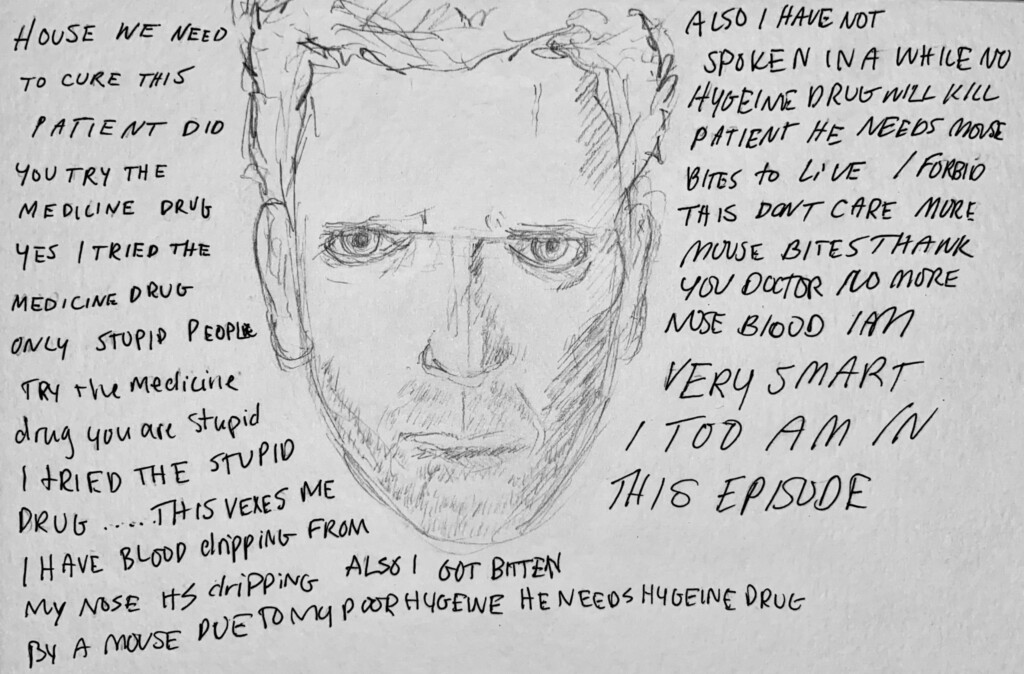 HOUSE WE NEED
TO CURE THIS
PATIENT DID
YOU TRY THE
MEDICINE DRUG
YES I TRIED THE
MEDICINE DRUG
ONLY STUPID PEOPLE
TRY the Medicine
drug you are stupid
I tRIED THE STUPID
DRUG ..... THIS VEXES ME
I HAVE BLOOD dripping FROM
MY NOSE ITS dripping ALSO I GOT BITTEN
BY A MOUSE DUE TO MY POOR HYGEINE HE NEEDS HYGEINE DRUG
ALSO I HAVE NOT
SPOKEN IN A WHILE NO
HYGEINE DRUG WILL KILL
PATIENT HE NEEDS MOUSE
BITES to LIVE I FORBID
THIS DONT CARE MORE
MOUSE BITES THANK
YOU DOCTOR NO MORE
NOSE BLOOD I AM
VERY SMART
I TOO AM IN
THIS EPISODE